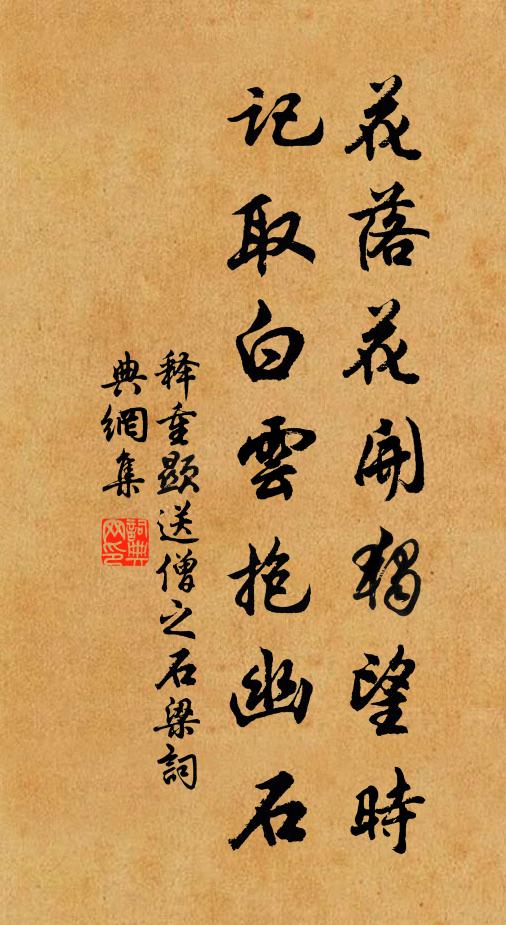 花落花開獨望時
記取白雲抱幽石
释重顯送僧之石梁詞
典網集
詞典
网印